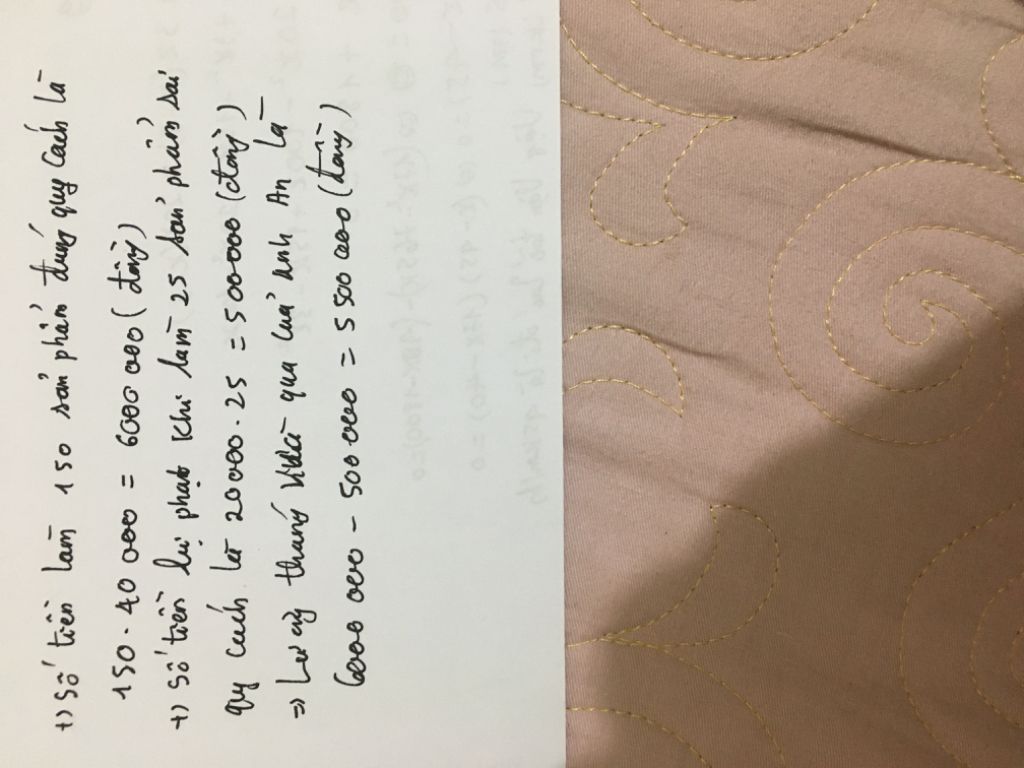 +) Số tiền làm 150 sản phẩm đúng quy cách là
150 . 40 000 = 6000 000 (đồng)
+) Số tiền bị phạt khi làm 25 sản phẩm sai
quy cách là 20000 . 25 = 500000 (đồng)
=> Lương tháng vừa qua của anh An là
6000 000 - 500 000 = 5 500 000 (đồng)